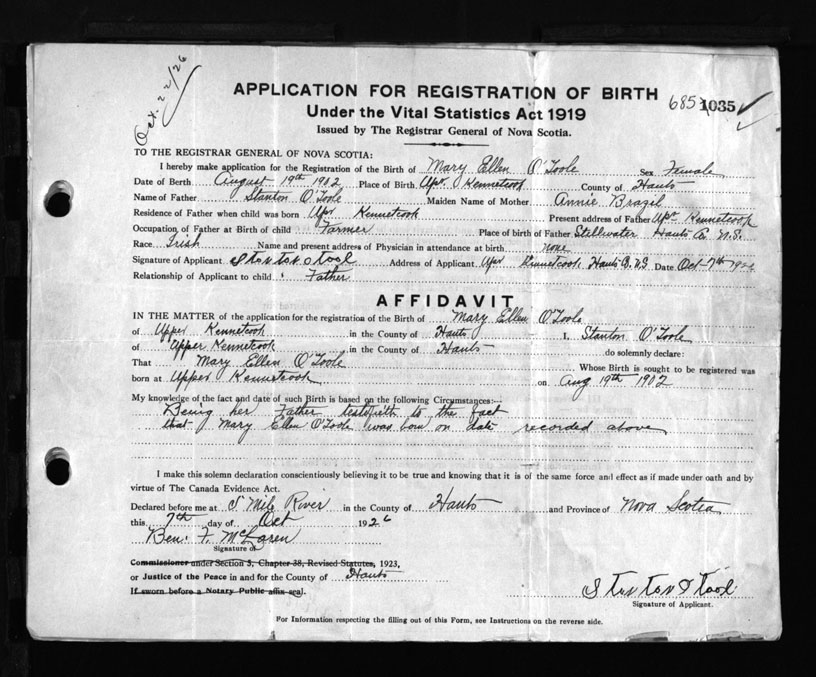 Oct. 22/26
APPLICATION FOR REGISTRATION OF BIRTH
685 1035
Under the Vital Statistics Act 1919
Issued by The Registrar General of Nova Scotia.
TO THE REGISTRAR GENERAL OF NOVA SCOTIA:
I hereby make application for the Registration of the Birth of Mary Ellen O'Toole Sex Female
Date of Birth August 19th 1902 Place of Birth Upr. Kennetcook County of Hants
Name of Father Stanton O'Toole Maiden Name of Mother Annie Brazil
Residence of Father when child was born Upr Kennetcook Present address of Father Upr Kennetcook
Occupation of Father at Birth of child Farmer Place of birth of Father Stillwater Hants Co N.S.
Race Irish Name and present address of Physician in attendance at birth none
Signature of Applicant Stonton O tool Address of Applicant Upr Kennetcook Hants Co. N.S Date Oct 7th 1926
Relationship of Applicant to child Father
AFFIDAVIT
IN THE MATTER of the application for the registration of the Birth of Mary Ellen O'Toole
of Upper Kennetcook in the County of Hants I, Stanton O'Toole
of Upper Kennetcook in the County of Hants do solemnly declare:
That Mary Ellen O'Toole Whose Birth is sought to be registered was
born at Upper Kennetcook on Aug 19th 1902
My knowledge of the fact and date of such Birth is based on the following Circumstances:—
Being her Father testifieth to the fact
that Mary Ellen O'Toole was born on date recorded above
I make this solemn declaration conscientiously believing it to be true and knowing that it is of the same force and effect as if made under oath and by
virtue of The Canada Evidence Act.
Declared before me at 5 Mile River in the County of Hants and Province of Nova Scotia
this 7th day of Oct 1926
Ben. F. McLaren
Signature of
Commissioner under Section 5, Chapter 38, Revised Statutes, 1923,
or Justice of the Peace in and for the County of Hants
If sworn before a Notary Public affix seal.
Stonton O tool
Signature of Applicant.
For Information respecting the filling out of this Form, see Instructions on the reverse side.